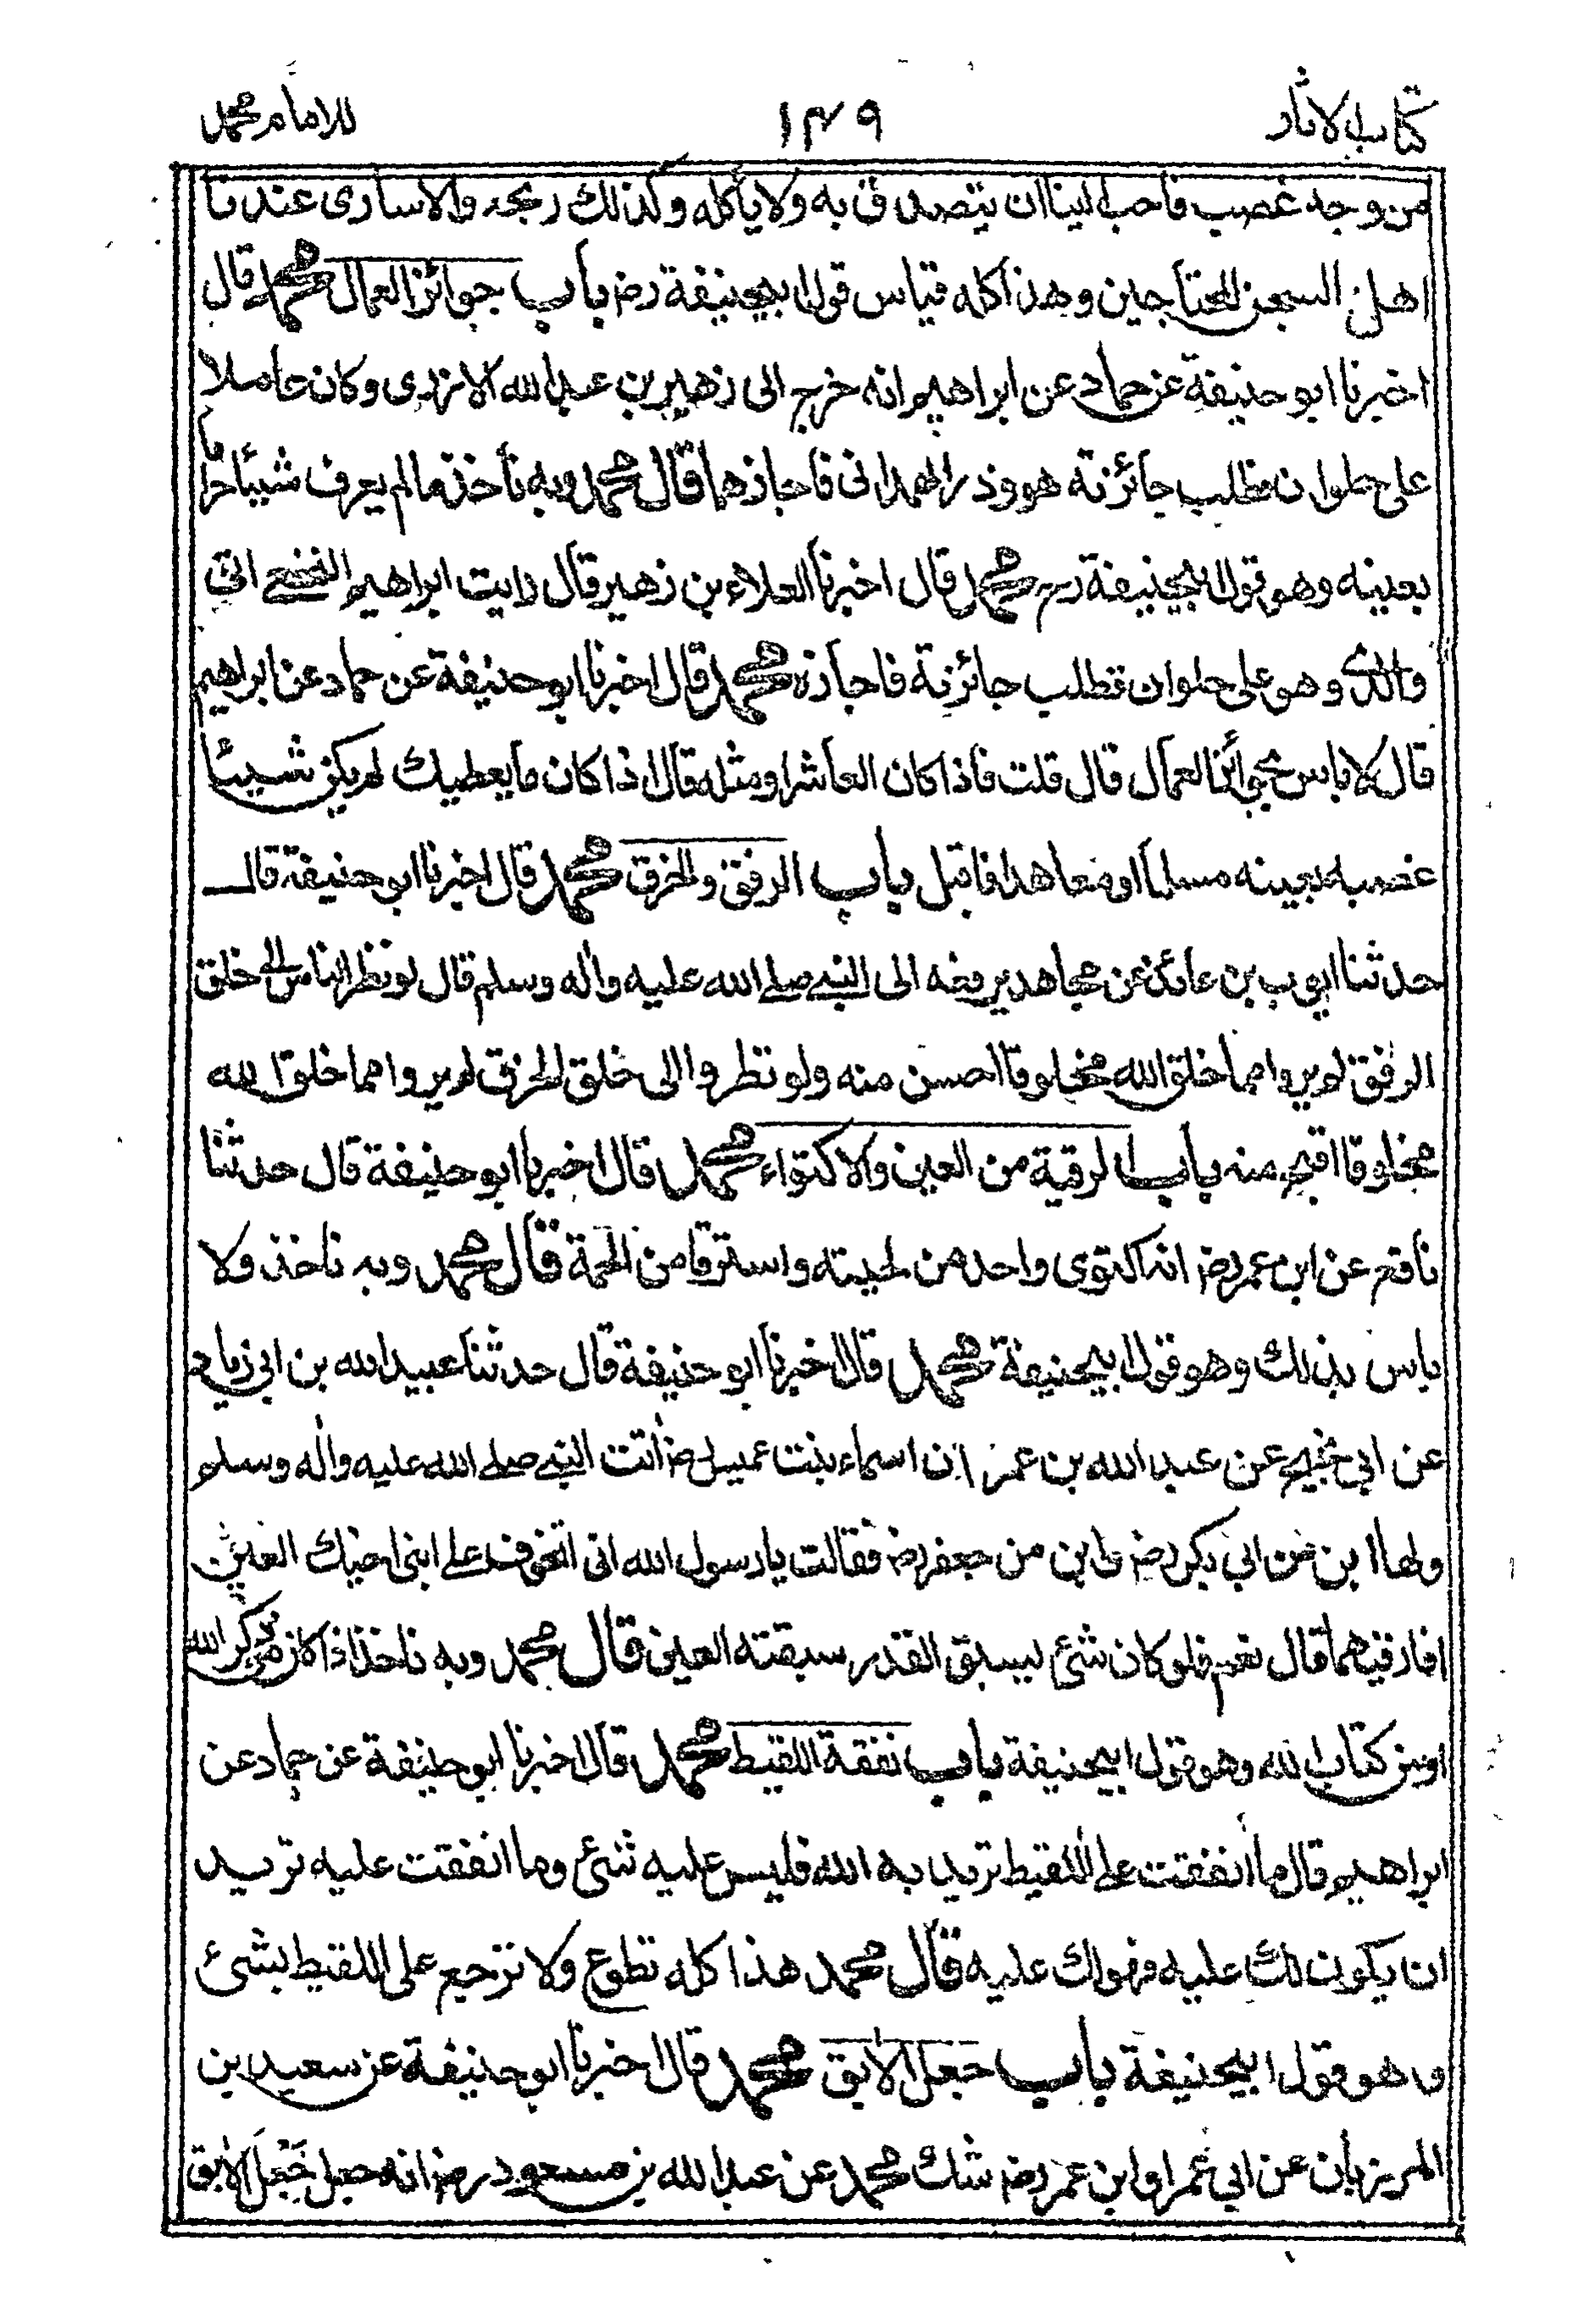 كتاب الاثار ١٤٩ للامام محمد
من وجه غصب فاحب الينا ان يتصدق به ولا يأكله وكذلك ربحه والاسارى عندنا
اهل السجن المحتاجين وهذا كله قياس قول ابيحنيفة رض باب جوائز العمال محمد قال
اخبرنا ابو حنيفة عن حماد عن ابراهيم انه خرج الى زهير بن عبد الله الازدى وكان عاملا
على حلوان فطلب جائزته هو وذر الهمدانى فاجازهما قال محمد وبه نأخذ ما لم يعرف شيئا حراما
بعينه وهو قول ابيحنيفة رح محمد قال اخبرنا العلاء بن زهير قال رايت ابراهيم النخعى اتى
والدى وهو على حلوان تطلب جائزته فاجازه محمد قال اخبرنا ابو حنيفة عن حماد عن ابراهيم
قال لا باس بجوائز العمال قال قلت فاذا كان العاشر او مثله قال اذا كان ما يعطيك لم يكن شيئا
غصبه بعينه مسلما او معاهدا فاقبل باب الرفق والخرق محمد قال اخبرنا ابو حنيفة قال
حدثنا ايوب بن عائذ عن مجاهد يرفعه الى النبى صلى الله عليه واله وسلم قال لو نظر الناس الى خلق
الرفق لم يروا مما خلق الله مخلوقا احسن منه ولو نظروا الى خلق الخرق لم يروا مما خلق الله
مخلوقا اقبح منه باب الرقية من العين والاكتواء محمد قال اخبرنا ابو حنيفة قال حدثنا
نافع عن ابن عمر رض انه اكتوى واخذ من لحيته واسترقا من الحمة قال محمد وبه ناخذ ولا
باس بذلك وهو قول ابيحنيفة محمد قال اخبرنا ابو حنيفة قال حدثنا عبيد الله بن ابي زياد
عن ابي نجيح عن عبد الله بن عمر ان اسماء بنت عميس رض أتت النبى صلى الله عليه واله وسلم
ولها ابن من ابي بكر رض وابن من جعفر رض فقالت يا رسول الله انى اتخوف على ابنى اخيك العين
افارقيهما قال نعم فلو كان شئ ليسبق القدر سبقته العين قال محمد وبه ناخذ اذا كان من ذكر الله
او من كتاب الله وهو قول ابيحنيفة باب نفقة اللقيط محمد قال اخبرنا ابو حنيفة عن حماد عن
ابراهيم قال ما أنفقت على اللقيط تريد به الله فليس عليه شئ وما انفقت عليه تريد
ان يكون لك عليه فهو لك عليه قال محمد هذا كله تطوع ولا ترجع على اللقيط بشئ
وهو قول ابيحنيفة باب جعل الآبق محمد قال اخبرنا ابو حنيفة عن سعيد بن
المرزبان عن ابي عمر او ابن عمر رض شك محمد عن عبد الله بن مسعود رض انه جعل جعل الآبق